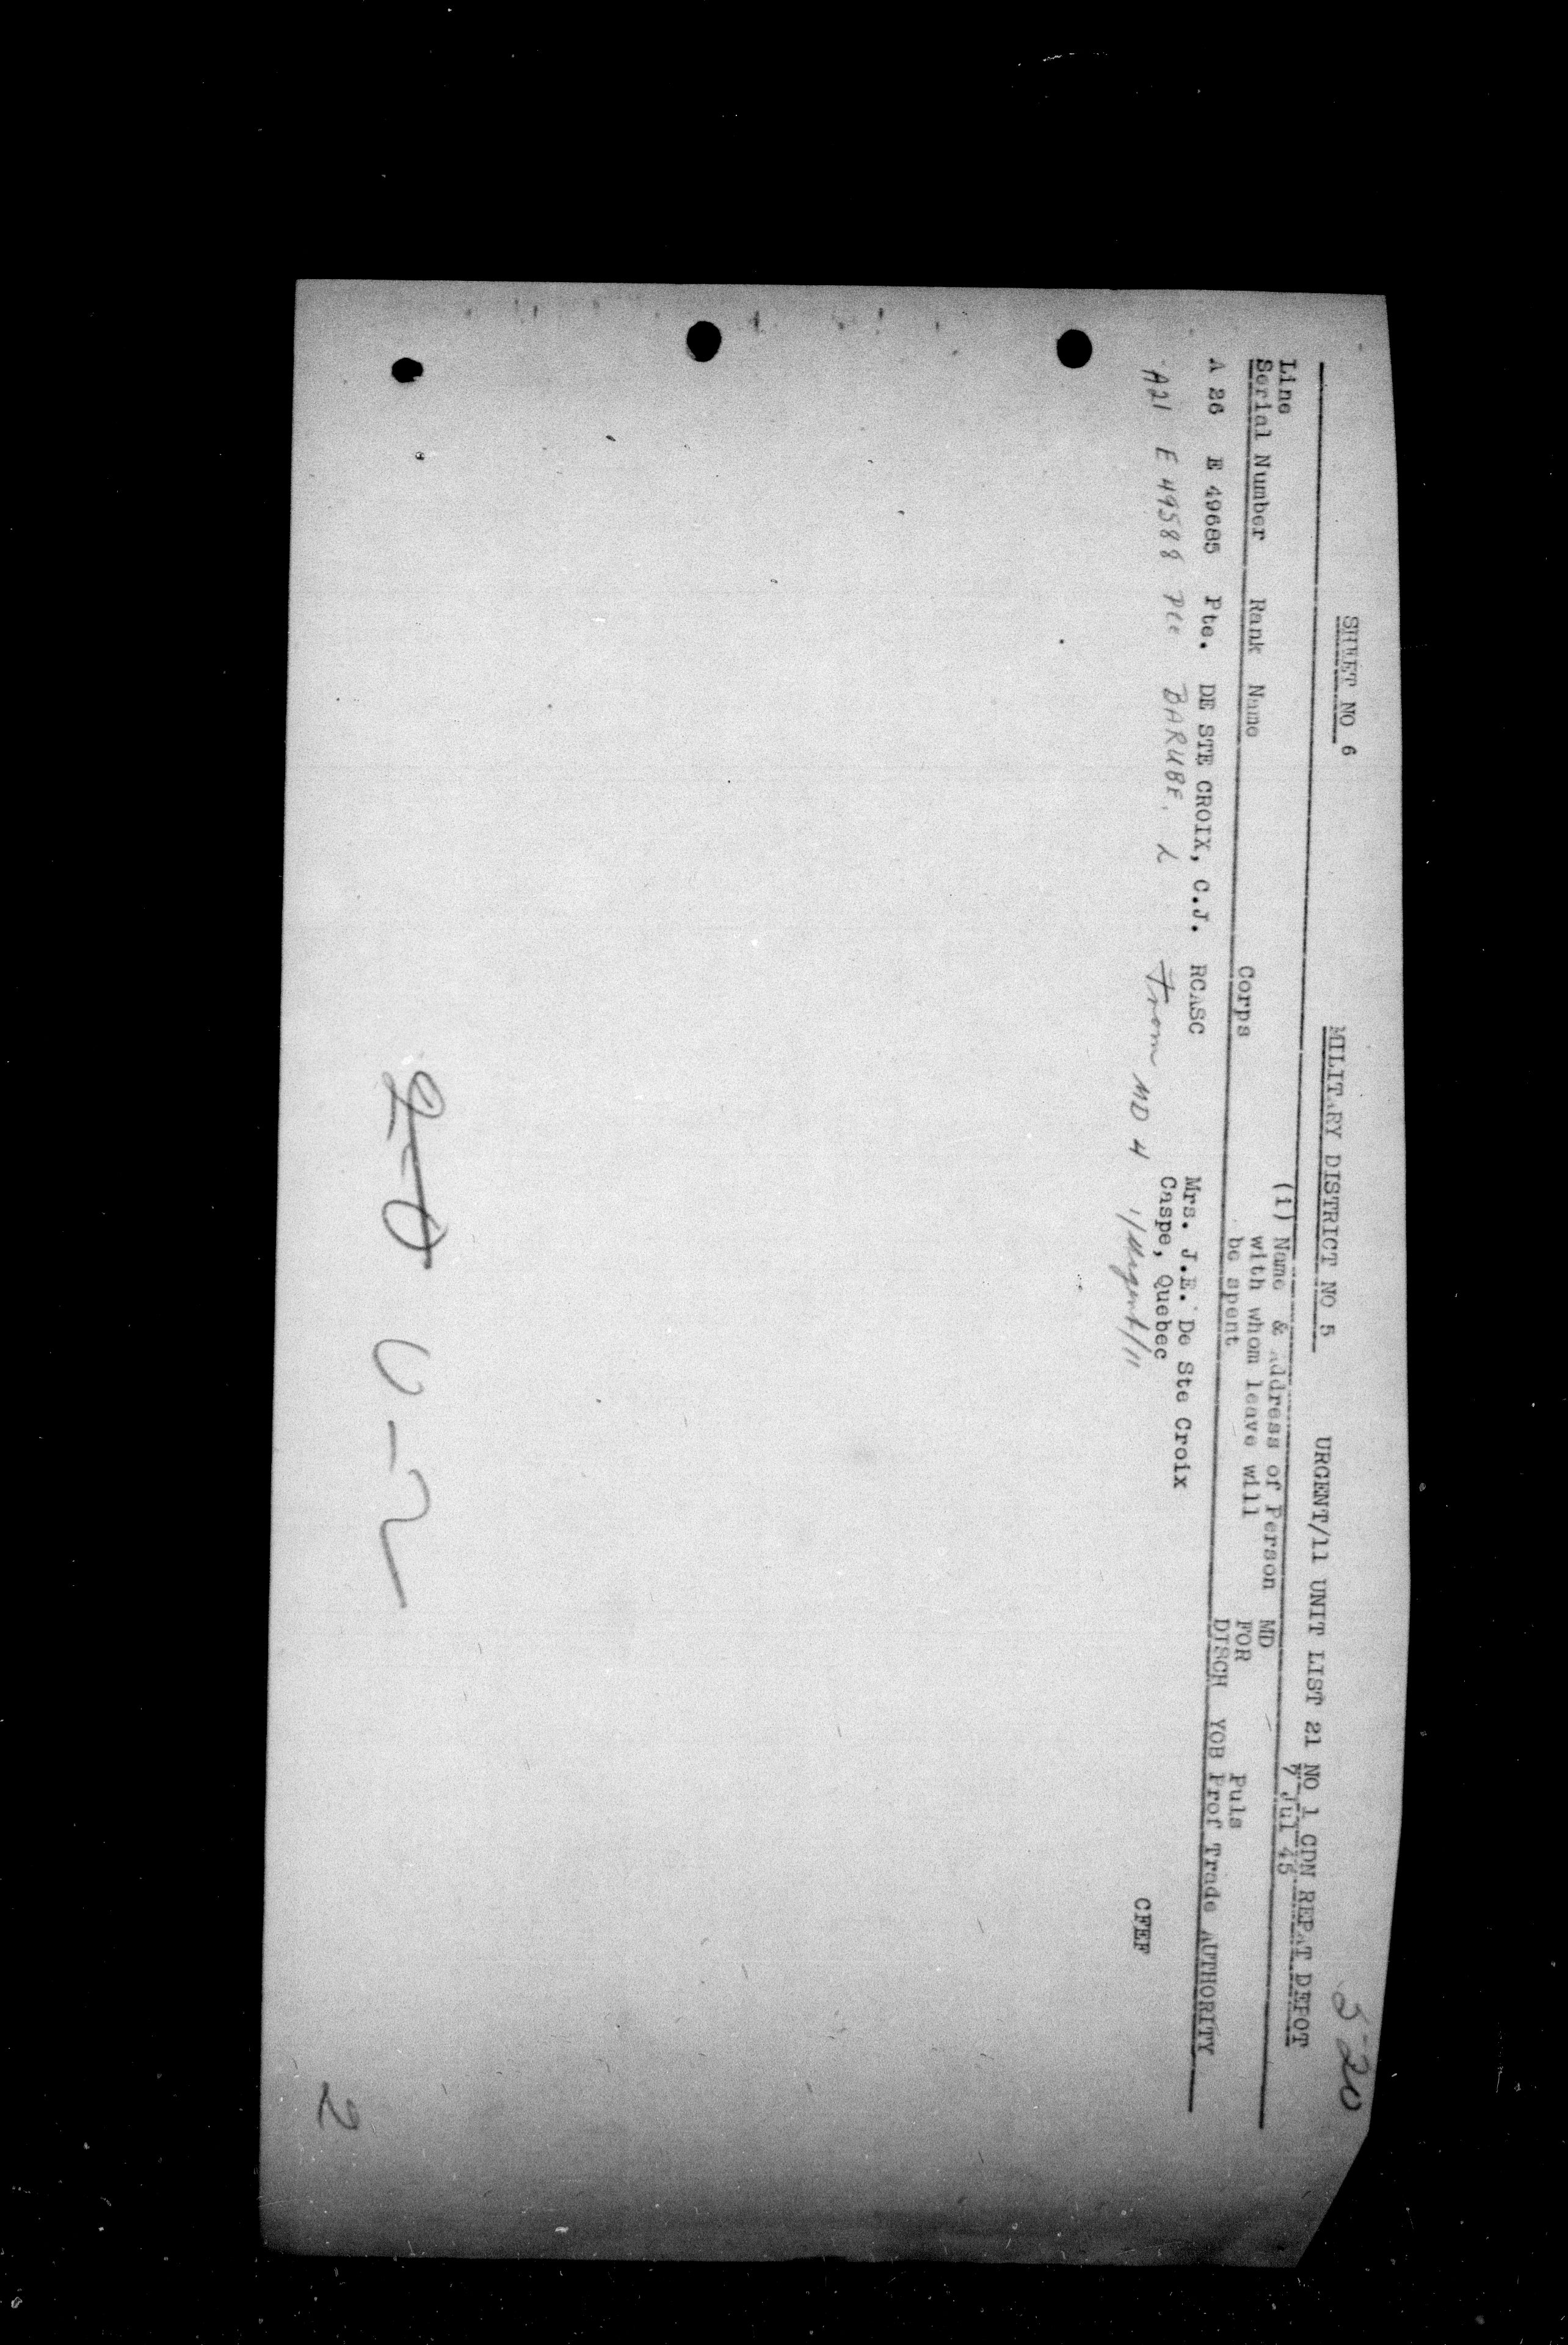 5 20
SHEET NO 6 MILITARY DISTRICT NO 5 URGENT/11 UNIT LIST 21 NO 1 CDN REPAT DEPOT
7 Jul 45
Line (i) Name & Address of Person MD
Serial Number Rank Name Corps with whom leave will FOR Puls
be spent DISCH YOB Prof Trade AUTHORITY
A 26 E 49685 Pte. DE STE CROIX, C.J. RCASC Mrs. J.E. De Ste Croix
Caspe, Quebec CFEF
A21 E 49588 Pte BARUBE, L From MD 4 1/Urgent/11
2-0 0-2
2